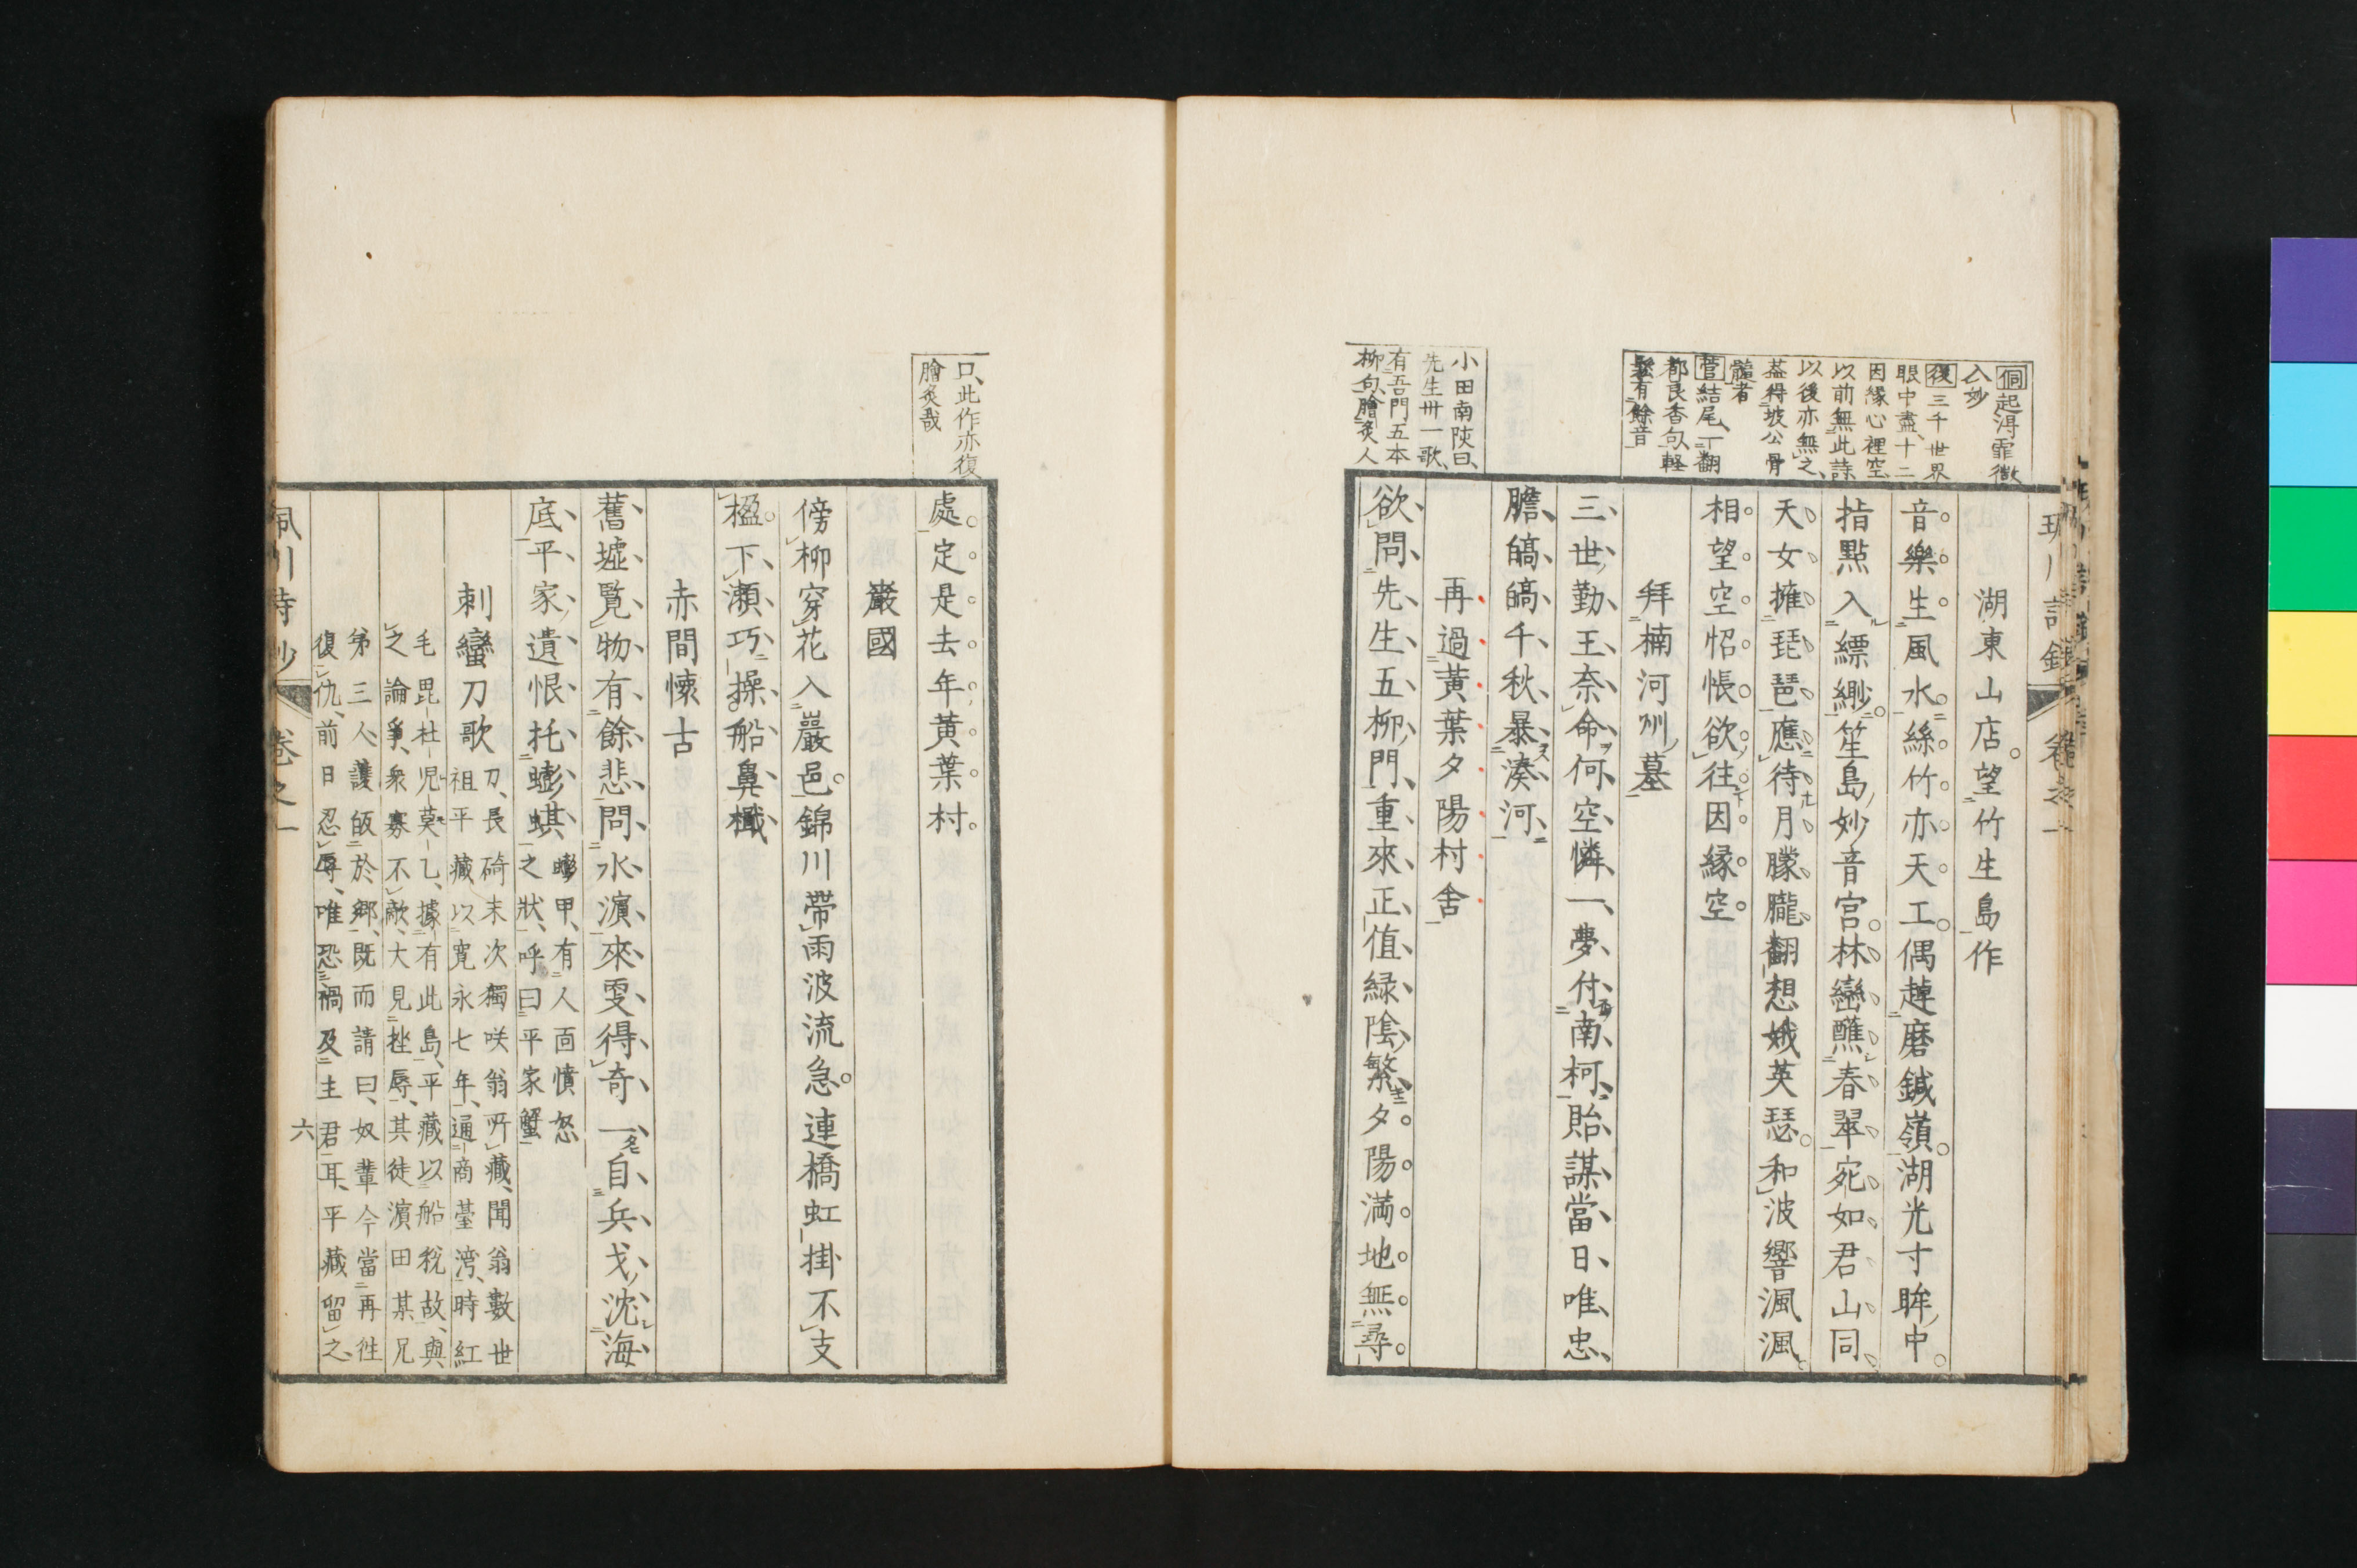 侗起淂霏微
入妙
復三千世界
眼中盡、十二
因緣心裡空
以前無此詩
以後亦無之、
葢得坡公骨
髓者
菅結尾、一翻
都良香句、軽
鬆有餘音
小田南陔曰、
先生卅一歌、
有吾門五本
柳句、膾炙人
湖東山店望竹生島作
音樂生風水絲竹亦天工偶趠磨鍼嶺湖光寸眸中
指點入縹緲笙島妙音宮林巒蘸春翠宛如君山同
天女擁琵琶應待月朦朧翻想娥英瑟和波響渢渢
相望空怊悵欲往因縁空
拜楠河州墓
三世勤王奈命何空憐一夢付南柯貽謀當日唯忠
膽皜皜千秋暴湊河
再過黃葉夕陽村舍
欲問先生五柳門重來正值緑陰繁夕陽満地無尋
口、此作亦復
膾炙哉
處定是去年黄葉村
巖國
傍柳穿花入巖邑錦川帶雨波流急連橋虹掛不支
楹下瀬巧操船鼻檝
赤間懐古
舊墟覧物有餘悲問水濵來雯得奇一自兵戈沈海
底平家遺恨托蟛蜞
蟛甲、有人面憤怒
之狀、呼曰平家蟹
刺蠻刀歌
刀、長碕末次獨咲翁所藏、聞翁數世
祖平藏、以寛永七年、通商臺湾、時紅
毛毘杜児莫乙、據有此島、平藏以船税故、與
之論爭、衆寡不敵、大見挫辱、其徒濵田某兄
弟三人護皈於郷、既而請曰、奴輩今當再徃
復仇、前日忍辱、唯恐禍及主君耳、平藏留之、
卷之一
六